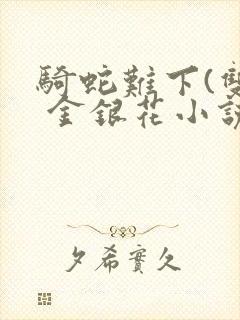 騎蛇難下(雙
金銀花小説
夕希實久